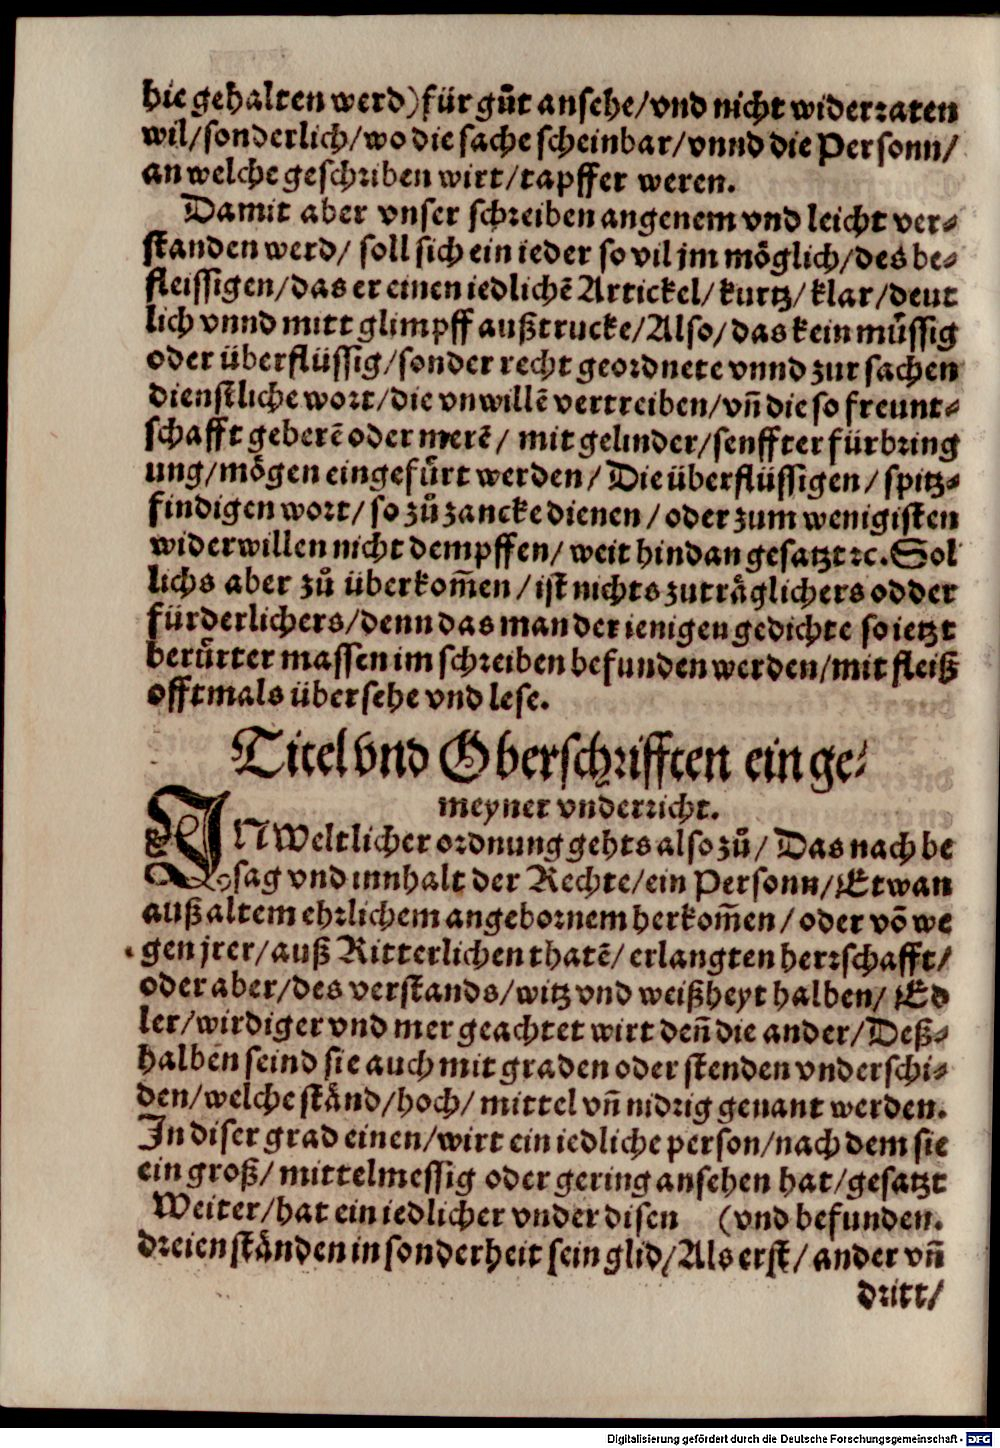 hie gehalten werd) für gůt ansehe/vnd nicht widerraten
wil/sonderlich/wo die sache scheinbar/vnnd die Personn/
an welche geschriben wirt/tapffer weren.
Damit aber vnser schreiben angenem vnd leicht ver⸗
standen werd/ soll sich ein ieder so vil jm möglich/des be⸗
fleissigen/das er einen iedlichē Artickel/kurtz/klar/deut
lich vnnd mitt glimpff außtrucke/Also/das kein mü̊ssig
oder überflüssig/sonder recht geordnete vnnd zur sachen
dienstliche wort/die vnwillē vertreiben/vn̄ die so freunt⸗
schafft geberē oder merē/ mit gelinder/senffter fürbring
ung/mögen eingefü̊rt werden/ Die überflüssigen/ spitz⸗
findigen wort/ so zů zancke dienen/oder zum wenigisten
widerwillen nicht dempffen/ weit hindan gesatzt ꝛc. Sol
lichs aber zů überkom̄en/ist nichts zuträglichers odder
fürderlichers/denn das man der ienigen gedichte so ietzt
berü̊rter massen im schreiben befunden werden/mit fleiß
offtmals übersehe vnd lese.
Titel vnd Oberschrifften ein ge⸗
meyner vnderricht.
IN Weltlicher ordnung gehts also zů/ Das nach be
sag vnd innhalt der Rechte/ein Personn/Etwan
auß altem ehrlichem angebornem herkom̄en/oder vō we
gen jrer/auß Ritterlichen thatē/ erlangten herrschafft/
oder aber/des verstands/witz vnd weißheyt halben/ Ed
ler/wirdiger vnd mer geachtet wirt den̄ die ander/Deß⸗
halben seind sie auch mit graden oder stenden vnderschi⸗
den/welche ständ/hoch/ mittel vn̄ nidrig genant werden.
In diser grad einen/wirt ein iedliche person/nach dem sie
ein groß/ mittelmessig oder gering ansehen hat/gesatzt
Weiter/hat ein iedlicher vnder disen (vnd befunden.
dreien ständen in sonderheit sein glid/Als erst/ ander vn̄
dritt/
Digitalisierung gefördert durch die Deutsche Forschungsgemeinschaft - DFG